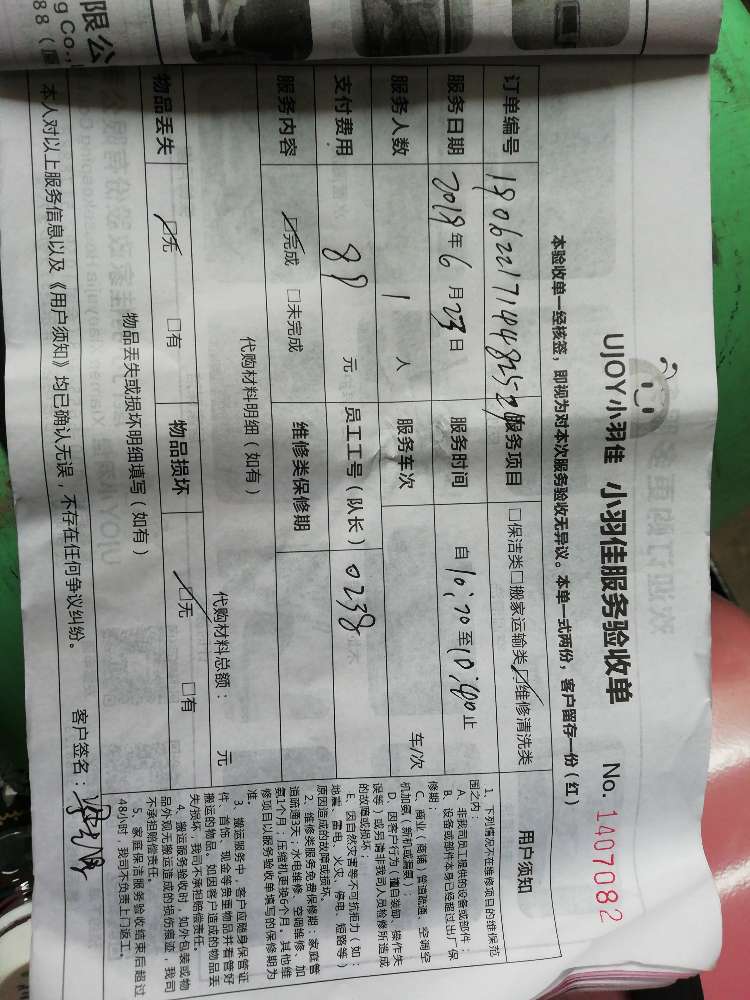 限公
g Co.,
88（厦
UJOY小羽佳 小羽佳服务验收单 No. 1407082
本验收单一经核签，即视为对本次服务验收无异议。本单一式两份，客户留存一份（红）
订单编号 服务项目 □保洁类□搬家运输类☑维修清洗类
服务日期 2019年6月23日 服务时间 自 至10:40止
服务人数 1 人 服务车次 车/次
支付费用 元 员工工号（队长） 0238
服务内容 ☑完成 □未完成 维修类保修期
代购材料明细（如有） 代购材料总额： 元
物品丢失 ☑无 □有 物品损坏 ☑无 □有
物品丢失或损坏明细填写（如有）
用户须知
1、下列情况不在维修项目的维保范
围之内：
A、非我司员工提供的设备或部件；
B、设备或部件本身已经超过出厂保
修期；
C、商业（商铺）管道疏通、空调空
机加氟（新机或漏氟）；
D、因客户行为（擅自装卸、操作失
误等）或另请非我司人员检修所造成
的故障或损坏；
E、因自然灾害等不可抗拒力（如：
地震、雷电、火灾、停电、短路等）
原因造成的故障或损坏。
2、维修类服务免费保修期：家庭管
道疏通7天；水电维修、空调维修、加
氨1个月；压缩机更换6个月。其他维
修项目以服务验收单填写的保修期为
准。
3、搬运服务中，客户应随身保管证
件、首饰、现金等贵重物品并看管好
搬运的物品，如因客户造成的物品丢
失/损坏，我司不承担赔偿责任。
4、搬运服务验收时，如外包装或物
品外观无搬运造成的损伤痕迹，我司
不承担赔偿责任。
5、家庭保洁服务验收结束后超过
48小时，我司不负责上门返工。
本人对以上服务信息以及《用户须知》均已确认无误，不存在任何争议纠纷。 客户签名：